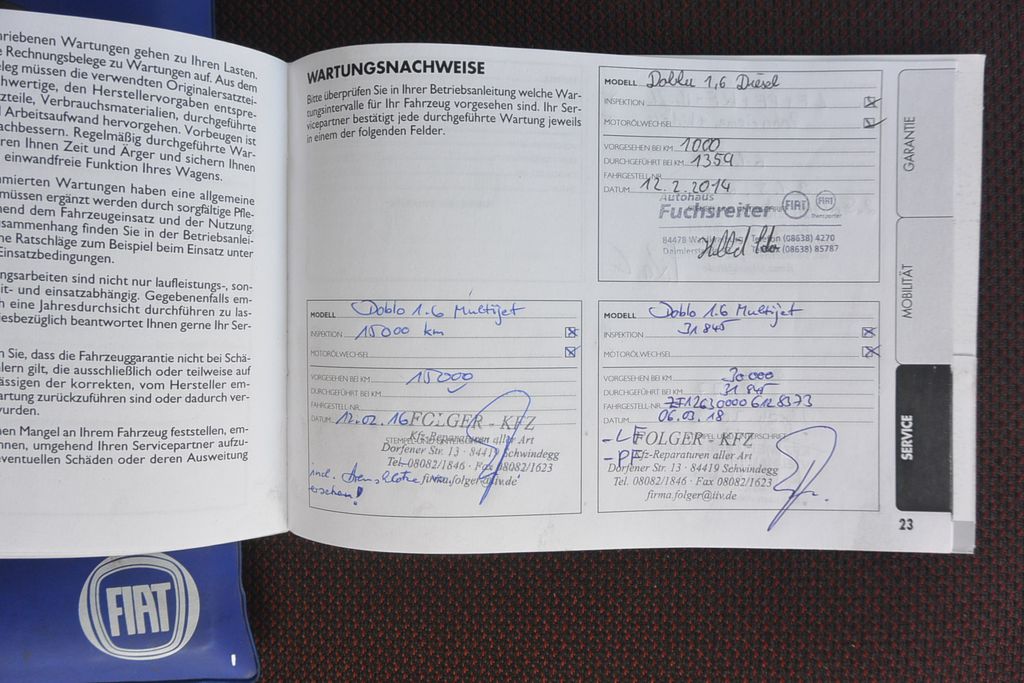 riebenen Wartungen gehen zu Ihren Lasten.
Rechnungsbelege zu Wartungen auf. Aus dem
leg müssen die verwendeten Originalersatztei-
hwertige, den Herstellervorgaben entspre-
zteile, Verbrauchsmaterialien, durchgeführte
Arbeitsaufwand hervorgehen. Vorbeugen ist
achbessern. Regelmäßig durchgeführte War-
ren Ihnen Zeit und Ärger und sichern Ihnen
einwandfreie Funktion Ihres Wagens.
mierten Wartungen haben eine allgemeine
müssen ergänzt werden durch sorgfältige Pfle-
hend dem Fahrzeugeinsatz und der Nutzung.
sammenhang finden Sie in der Betriebsanlei-
he Ratschläge zum Beispiel beim Einsatz unter
Einsatzbedingungen.
ngsarbeiten sind nicht nur laufleistungs-, son-
it- und einsatzabhängig. Gegebenenfalls em-
h eine Jahresdurchsicht durchführen zu las-
esbezüglich beantwortet Ihnen gerne Ihr Ser-
n Sie, dass die Fahrzeuggarantie nicht bei Schä-
lern gilt, die ausschließlich oder teilweise auf
ässigen der korrekten, vom Hersteller em-
artung zurückzuführen sind oder dadurch ver-
urden.
nen Mangel an Ihrem Fahrzeug feststellen, em-
nnen, umgehend Ihren Servicepartner aufzu-
eventuellen Schäden oder deren Ausweitung
FIAT
WARTUNGSNACHWEISE
Bitte überprüfen Sie in Ihrer Betriebsanleitung welche War-
tungsintervalle für Ihr Fahrzeug vorgesehen sind. Ihr Ser-
vicepartner bestätigt jede durchgeführte Wartung jeweils
in einem der folgenden Felder.
MODELL Doblu 1,6 Diesel
INSPEKTION
MOTORÖLWECHSEL
VORGESEHEN BEI KM 1000
DURCHGEFÜHRT BEI KM 1359
FAHRGESTELL NR.
DATUM 12.2.2014
Autohaus
Fuchsreiter FIAT FIAT
Transporter
84478 Telefon (08638) 4270
Telefax (08638) 85787
MODELL Doblo 1.6 Multijet
INSPEKTION 15000 km
MOTORÖLWECHSEL
VORGESEHEN BEI KM 15000
DURCHGEFÜHRT BEI KM
FAHRGESTELL NR.
DATUM 12.02.16 FOLGER - KFZ
Kfz-Reparaturen aller Art
Dorfener Str. 13 · 84419 Schwindegg
Tel. 08082/1846 · Fax 08082/1623
incl. firma.folger@iiv.de
MODELL Doblo 1.6 Multijet
INSPEKTION 31845
MOTORÖLWECHSEL
VORGESEHEN BEI KM 30000
DURCHGEFÜHRT BEI KM 31845
FAHRGESTELL NR. ZF126300006128373
DATUM 06.03.18
-LF FOLGER - KFZ
-PF Kfz-Reparaturen aller Art
Dorfener Str. 13 · 84419 Schwindegg
Tel. 08082/1846 · Fax 08082/1623
firma.folger@iiv.de
GARANTIE
MOBILITÄT
SERVICE
23